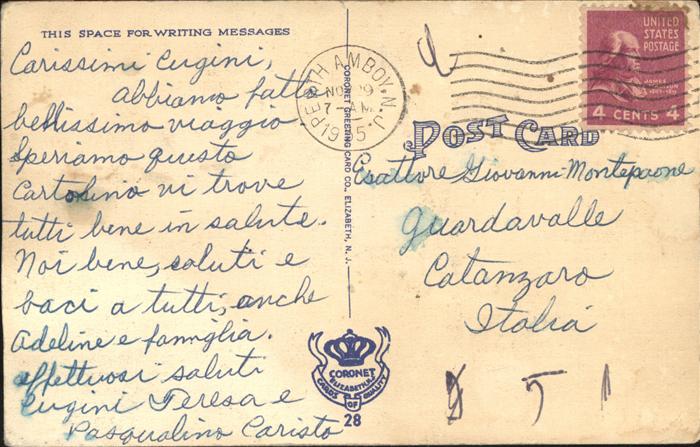 THIS SPACE FOR WRITING MESSAGES
Carissimi Cugini,
abbiamo fatto
bellissimo viaggio
Speriamo questo
Cartolino vi trove
tutti bene in salute.
Noi bene, saluti e
baci a tutti, anche
Adeline e famiglia.
affettuosi saluti
Cugini Teresa e
Pasqualino Caristo
CORONET GREETING CARD CO., ELIZABETH, N. J.
PERTH AMBOY, N.J.
NOV 29
7 - AM
UNITED
STATES
POSTAGE
JAMES
4 CENTS 4
POST CARD
Esattore Giovanni Montepaone
Guardavalle
Catanzaro
Italia
5 1
CORONET
ELIZABETH, N.J.
CARDS OF QUALITY
28